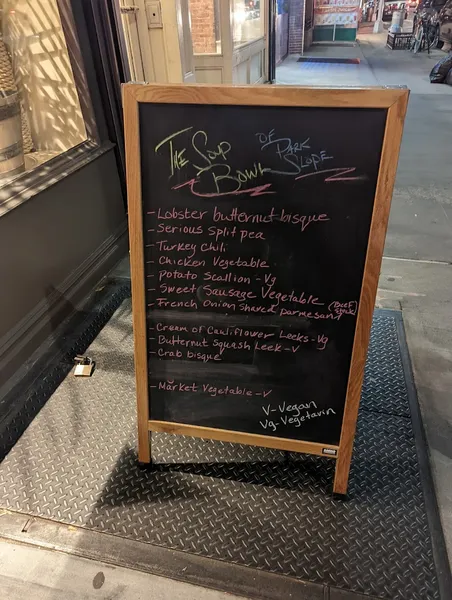 The Soup Bowl
OF PARK SLOPE
- Lobster butternut bisque
- Serious Split pea
- Turkey Chili
- Chicken Vegetable
- Potato Scallion - Vg
- Sweet Sausage Vegetable
- French Onion Shaved parmesano (Beef Stock)
- Cream of Cauliflower Leeks - Vg
- Butternut Squash Leek - V
- Crab bisque
- Market Vegetable - V
V - Vegan
Vg - Vegetarin